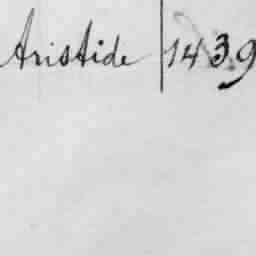 Aristide | 1439